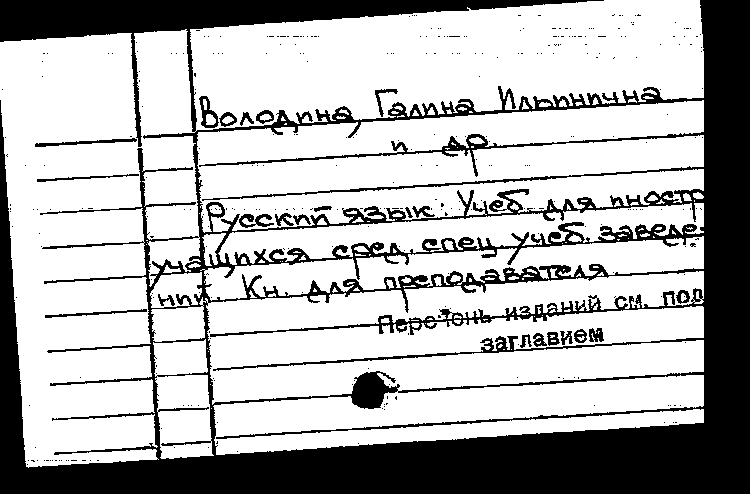 Володина, Галина Ильинична
и др.
Русский язык: Учеб. для иностр.
учащихся сред. спец. учеб. заведе-
ний. Кн. для преподавателя.
Перечень изданий см. под
заглавием